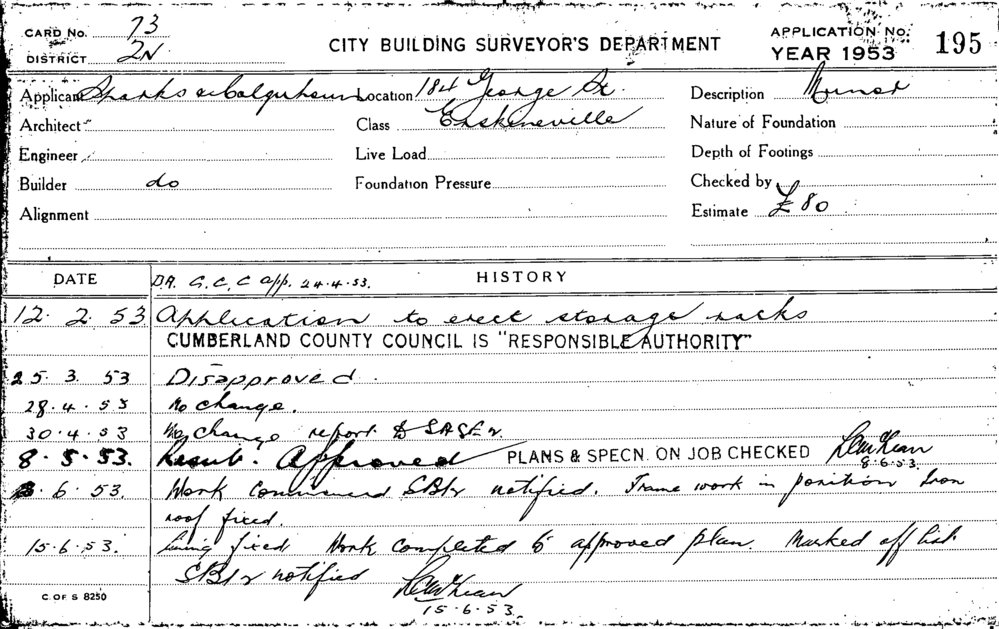 CARD No. 73
DISTRICT 2N
CITY BUILDING SURVEYOR'S DEPARTMENT
APPLICATION No.
YEAR 1953
195
Applicant Sparks & Colquhoun Location 184 George St. Description Minor
Architect Class Erskineville Nature of Foundation
Engineer Live Load Depth of Footings
Builder do Foundation Pressure Checked by
Alignment Estimate £80
DATE DA. C.C.C app. 24.4.53. HISTORY
12. 2. 53 Application to erect storage racks
CUMBERLAND COUNTY COUNCIL IS "RESPONSIBLE AUTHORITY"
25. 3. 53 Disapproved.
28. 4. 53 No change.
30. 4. 53 No change report to
8. 5. 53. Resub. Approved PLANS & SPECN. ON JOB CHECKED
8.6.53.
8. 6. 53. Work commenced notified. Frame work in position Iron
roof fixed.
15. 6. 53. fixed Work completed to approved plan. Marked off list
notified
15.6.53.
C OF S 8250